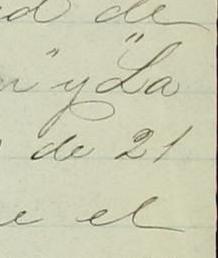 de
" y "La
de 21
el